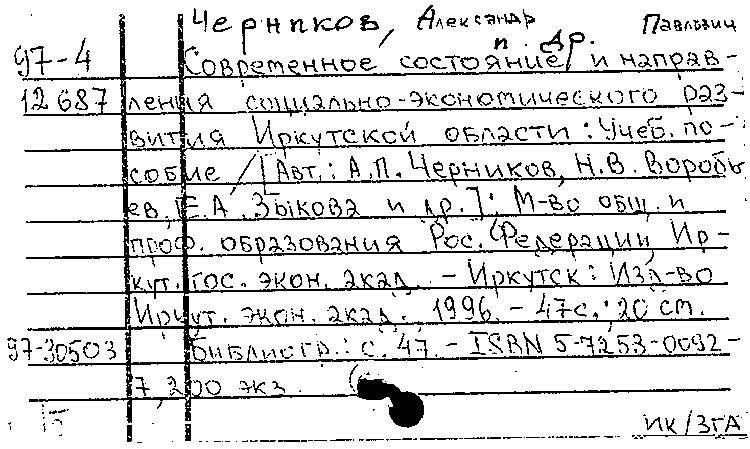 Черников, Александр Павлович
и др.
97-4 Современное состояние и направ-
12687 ления социально-экономического раз-
вития Иркутской области : Учеб. по-
собие / [Авт.: А.П. Черников, Н.В. Воробь
ев, Е.А. Зыкова и др.]; М-во общ. и
проф. образования Рос. Федерации, Ир-
кут. гос. экон. акад. - Иркутск : Изд-во
Иркут. экон. акад., 1996. - 47 с.; 20 см.
97-30503 Библиогр.: с. 47. - ISBN 5-7253-0092-
7, 200 экз.
ИК/ЗГА